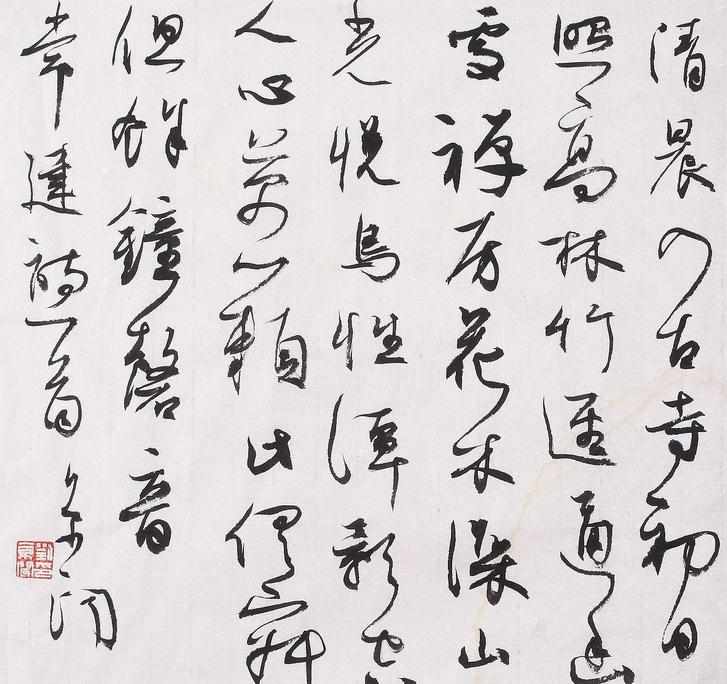 清晨入古寺初日
照高林竹逕通幽
處禪房花木深山
光悦鳥性潭影空
人心萬籟此俱寂
但餘鐘磬音
常建詩一首